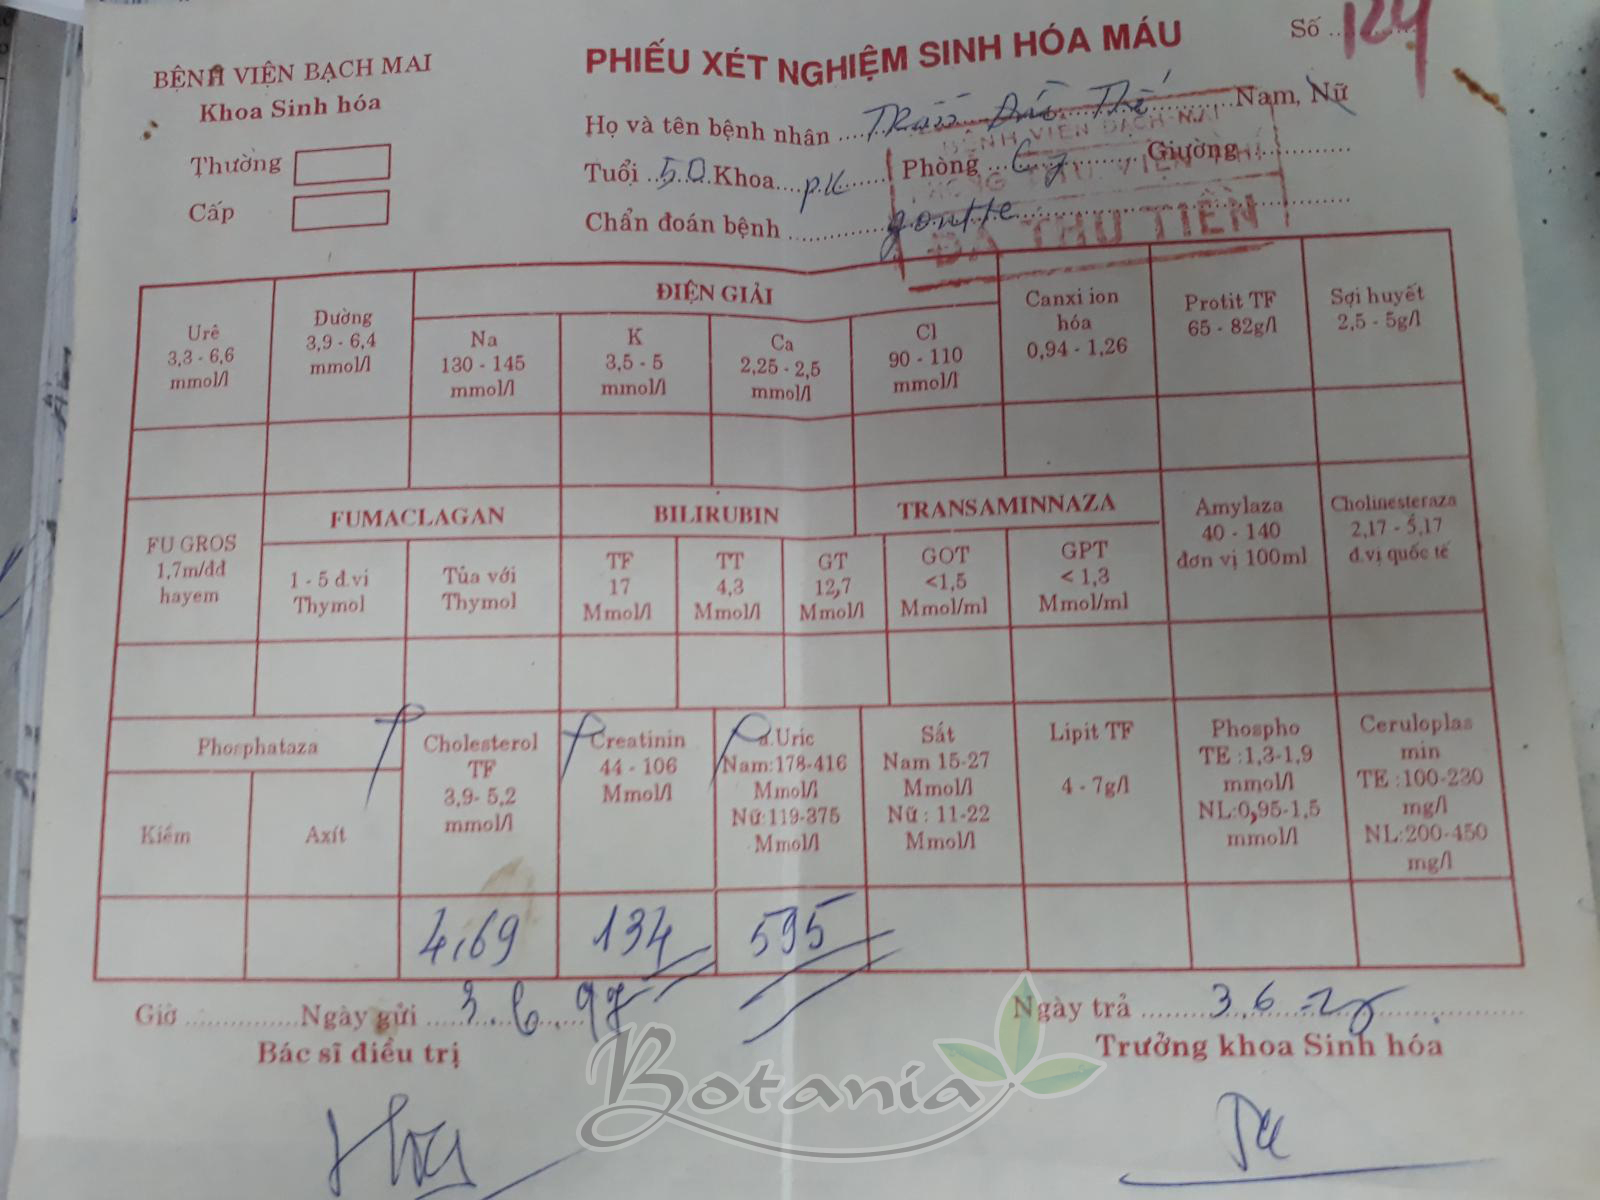 BỆNH VIỆN BẠCH MAI
Khoa Sinh hóa
Thường
Cấp
PHIẾU XÉT NGHIỆM SINH HÓA MÁU
Số ..124
Họ và tên bệnh nhân .... Nam, Nữ
Tuổi ..50.Khoa....p.K...... Phòng ........ Giường ............
Chẩn đoán bệnh ............goutte............
BỆNH VIỆN BẠCH MAI
ĐÃ THU TIỀN
Urê
3,3 - 6,6
mmol/l
Đường
3,9 - 6,4
mmol/l
ĐIỆN GIẢI
Na
130 - 145
mmol/l
K
3,5 - 5
mmol/l
Ca
2,25 - 2,5
mmol/l
Cl
90 - 110
mmol/l
Canxi ion
hóa
0,94 - 1,26
Protit TF
65 - 82g/l
Sợi huyết
2,5 - 5g/l
FU GROS
1,7m/dd
hayem
FUMACLAGAN
1 - 5 đ.vi
Thymol
Tủa với
Thymol
BILIRUBIN
TF
17
Mmol/l
TT
4,3
Mmol/l
GT
12,7
Mmol/l
TRANSAMINNAZA
GOT
<1,5
Mmol/ml
GPT
< 1,3
Mmol/ml
Amylaza
40 - 140
đơn vị 100ml
Cholinesteraza
2,17 - 5,17
đ.vị quốc tế
Phosphataza
Kiềm
Axít
Cholesterol
TF
3,9- 5,2
mmol/l
Creatinin
44 - 106
Mmol/l
a.Uric
Nam:178-416
Mmol/l
Nữ:119-375
Mmol/l
Sắt
Nam 15-27
Mmol/l
Nữ : 11-22
Mmol/l
Lipit TF
4 - 7g/l
Phospho
TE :1,3-1,9
mmol/l
NL:0,95-1,5
mmol/l
Ceruloplas
min
TE :100-230
mg/l
NL:200-450
mg/l
4,69
134
595
Giờ ................Ngày gửi ...3..6....
Ngày trả .........3.6............
Bác sĩ điều trị
Trưởng khoa Sinh hóa
Botania